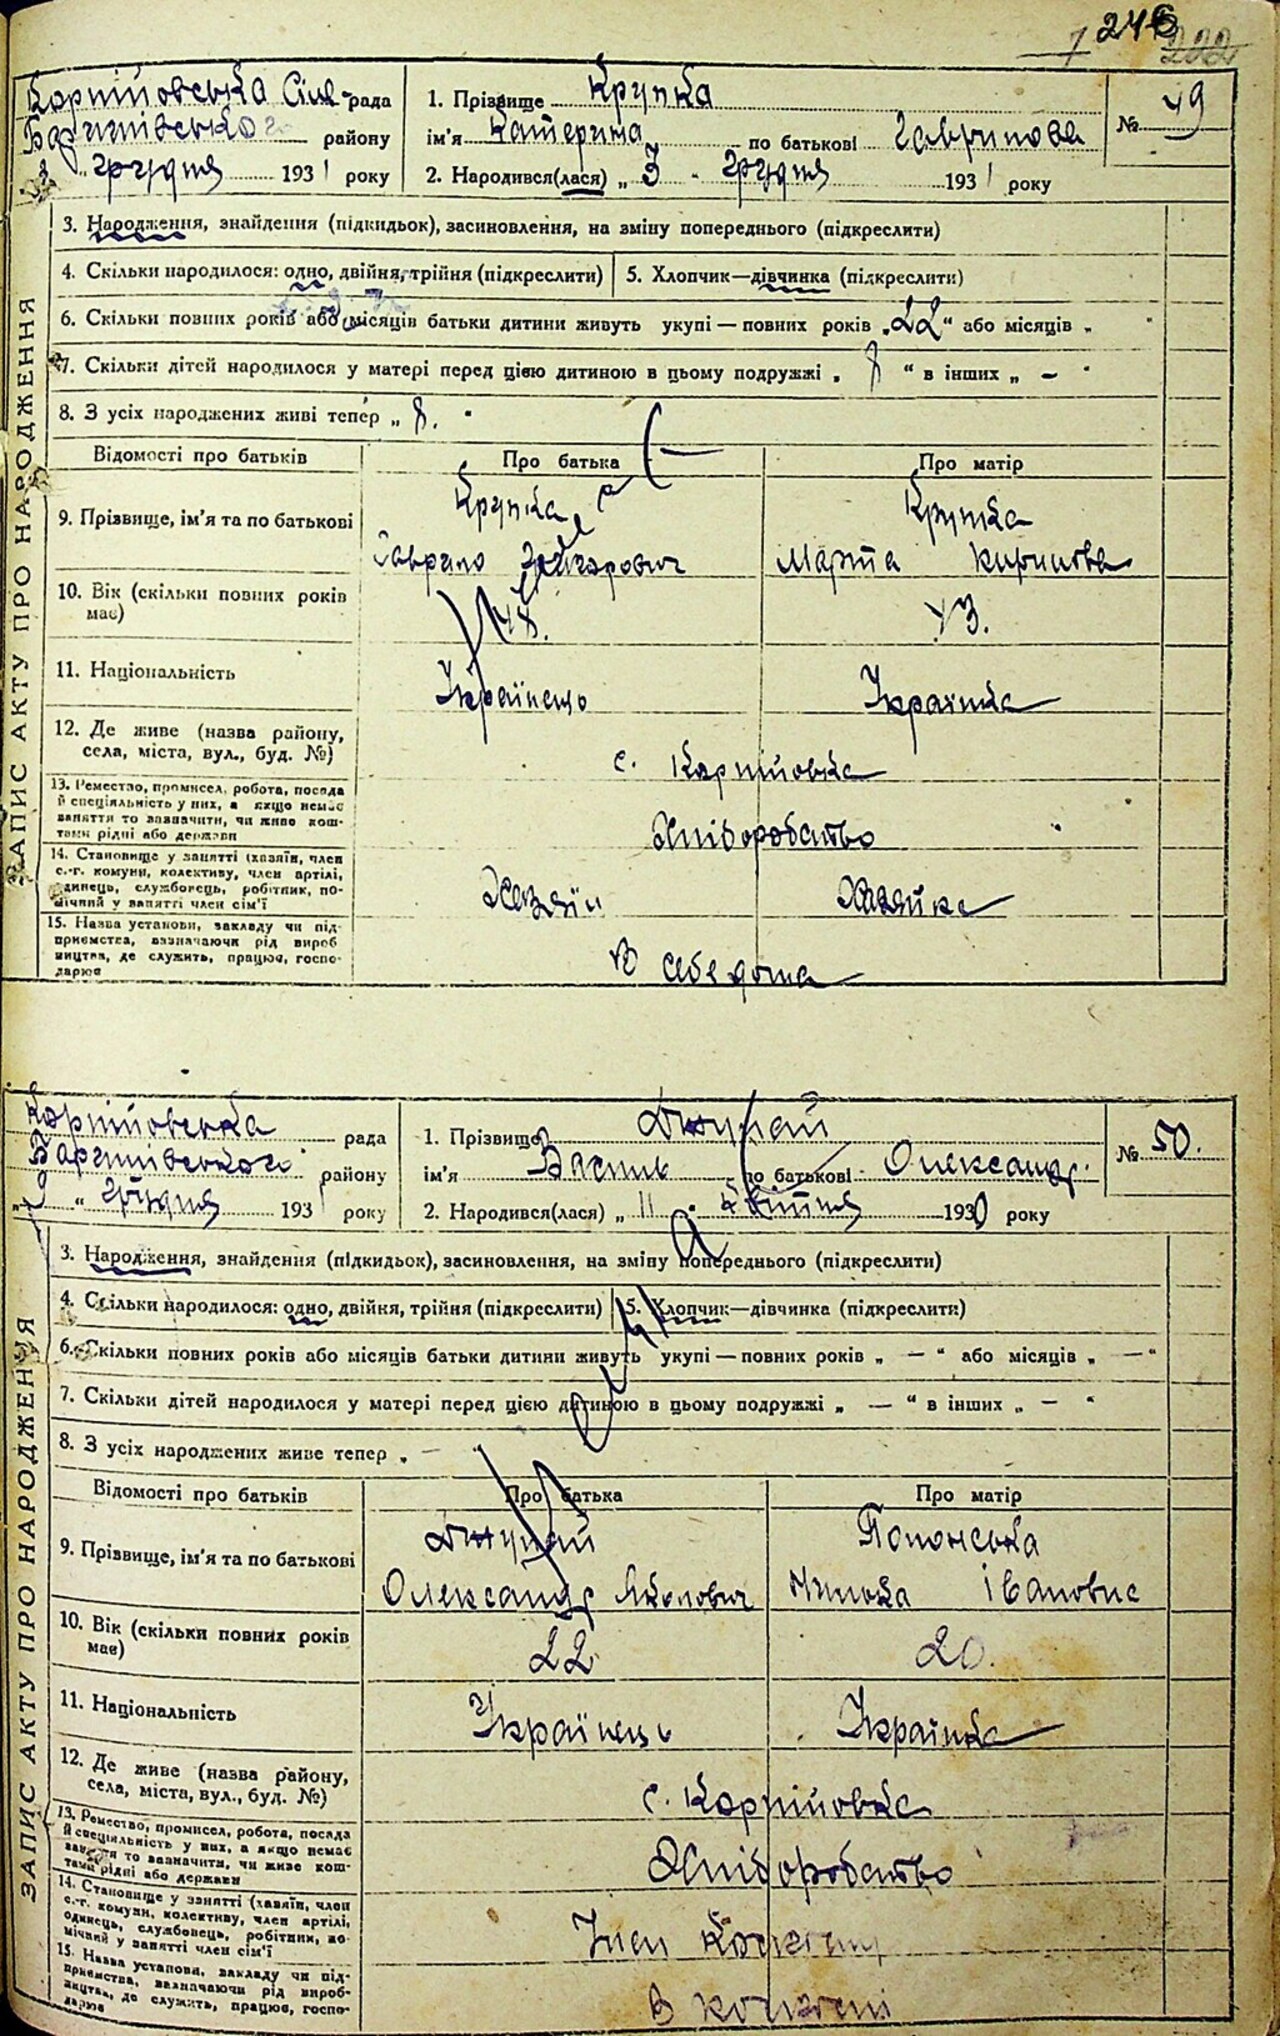 246
222
Карпиловська Сіль-рада
Баришівського району
грудня 1931 року
1. Прізвище Крупка
ім'я Катерина по батькові Гаврилова
2. Народився(лася) „ 3 „ грудня 1931 року
№ 49
ЗАПИС АКТУ ПРО НАРОДЖЕННЯ
3. Народження, знайдення (підкидьок), засиновлення, на зміну попереднього (підкреслити)
4. Скільки народилося: одно, двійня, трійня (підкреслити)
5. Хлопчик—дівчинка (підкреслити)
6. Скільки повних років або місяців батьки дитини живуть укупі — повних років „22“ або місяців „ “
7. Скільки дітей народилося у матері перед цією дитиною в цьому подружжі „ 8 “ в інших „ – “
8. З усіх народжених живі тепер „ 8.
Відомості про батьків
Про батька
Про матір
9. Прізвище, ім'я та по батькові
Крупка
Гаврило
Крупка
Марта Кирилова
10. Вік (скільки повних років має)
48.
43.
11. Національність
Українець
Українка
12. Де живе (назва району, села, міста, вул., буд. №)
с. Карпиловка
13. Ремество, промисел, робота, посада
й спеціяльність у них, а якщо немає
заняття то зазначити, чи живе кош-
тами рідні або держави
Хліборобство
14. Становище у занятті (хазяїн, член
с.-г. комуни, колективу, член артілі,
одинець, службовець, робітник, по-
мічний у занятті член сім'ї
Хазяїн
Хазяйка
15. Назва установи, закладу чи під-
приємства, зазначаючи рід вироб
ництва, де служить, працює, госпо-
дарює
В себе дома
Карпиловська рада
Баришівського району
„ “ грудня 193 року
1. Прізвище
ім'я Василь по батькові Олександр.
2. Народився(лася) „ 11 „ квітня 1930 року
№ 50.
ЗАПИС АКТУ ПРО НАРОДЖЕННЯ
3. Народження, знайдення (підкидьок), засиновлення, на зміну попереднього (підкреслити)
4. Скільки народилося: одно, двійня, трійня (підкреслити)
5. Хлопчик—дівчинка (підкреслити)
6. Скільки повних років або місяців батьки дитини живуть укупі — повних років „ — “ або місяців „ — “
7. Скільки дітей народилося у матері перед цією дитиною в цьому подружжі „ — “ в інших „ — “
8. З усіх народжених живе тепер „ —
Відомості про батьків
Про батька
Про матір
9. Прізвище, ім'я та по батькові
Олександр Якович
Івановна
10. Вік (скільки повних років має)
22
20.
11. Національність
Українець
Українка
12. Де живе (назва району, села, міста, вул., буд. №)
с. Карпиловка
13. Ремество, промисел, робота, посада
й спеціяльність у них, а якщо немає
заняття то зазначити, чи живе кош-
тами рідні або держави
Хліборобство
14. Становище у занятті (хазяїн, член
с.-г. комуни, колективу, член артілі,
одинець, службовець, робітник, по-
мічний у занятті член сім'ї
Член колгоспу
15. Назва установи, закладу чи під-
приємства, зазначаючи рід вироб-
ництва, де служить, працює, госпо-
дарює
В колгоспі